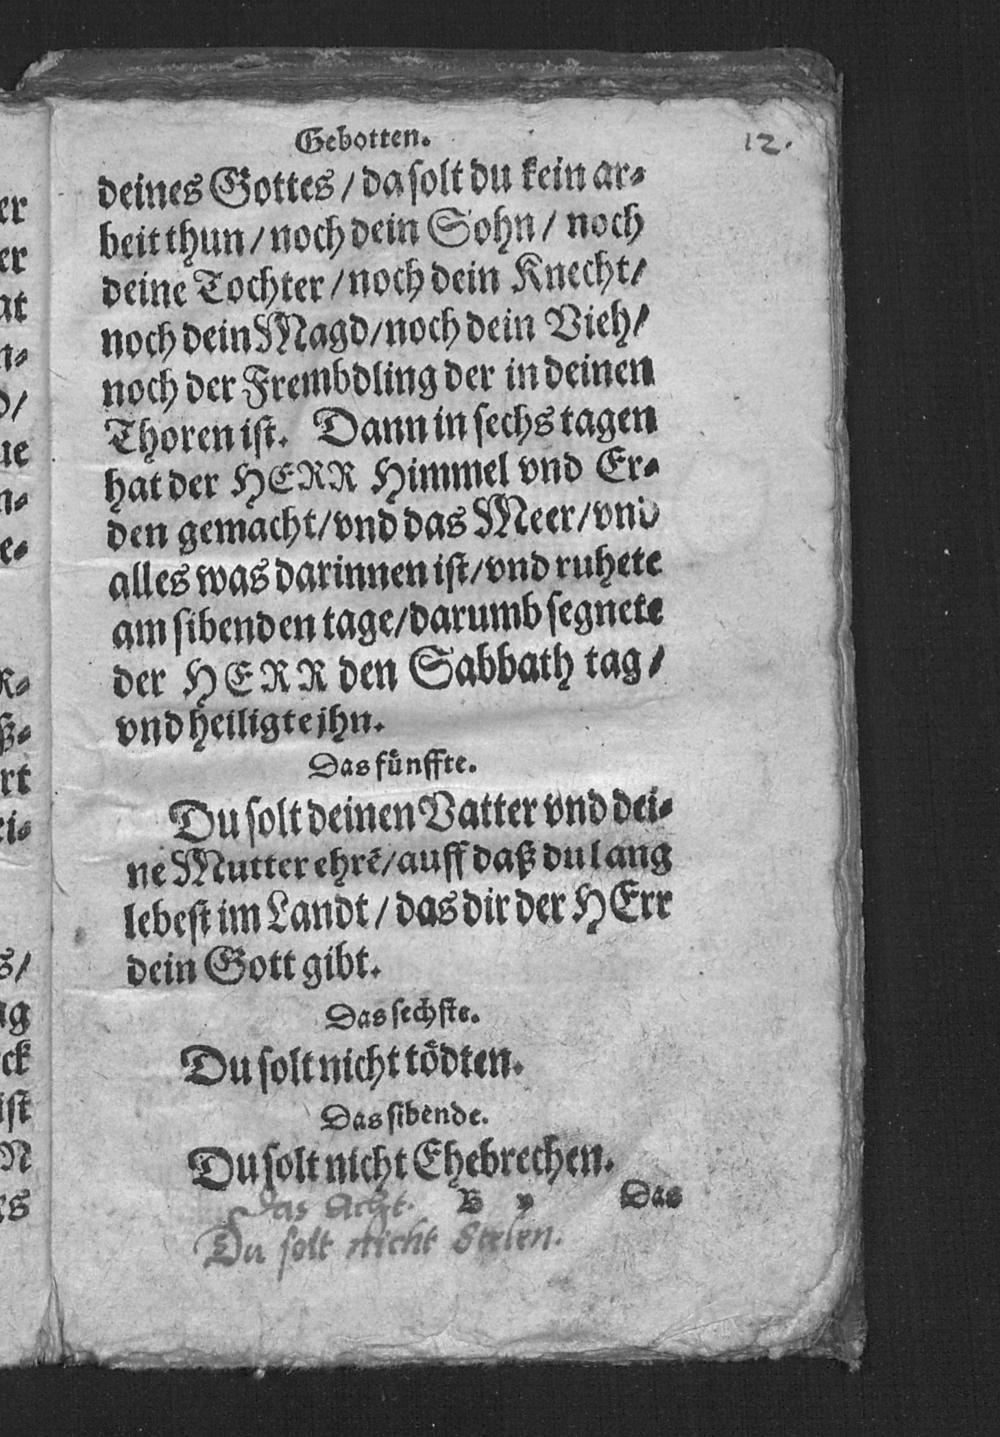 Gebotten.
12.
deines Gottes / da solt du kein ar⸗
beit thun / noch dein Sohn / noch
deine Tochter / noch dein Knecht /
noch dein Magd / noch dein Vieh /
noch der Frembdling der in deinen
Thoren ist. Dann in sechs tagen
hat der HERR Himmel vnd Er⸗
den gemacht / vnd das Meer / vnd
alles was darinnen ist / vnd ruhete
am sibenden tage / darumb segnete
der HERR den Sabbath tag /
vnd heiligte jhn.
Das fünffte.
Du solt deinen Vatter vnd dei⸗
ne Mutter ehrē / auff daß du lang
lebest im Landt / das dir der HErr
dein Gott gibt.
Das sechste.
Du solt nicht tödten.
Das sibende.
Du solt nicht Ehebrechen.
B v Das
Das Acht.
Du solt nicht Stelen.
er
er
at
n⸗
d /
ue
n⸗
e⸗
R⸗
ß⸗
rt
ei⸗
s /
ag
ck
ist
N
es